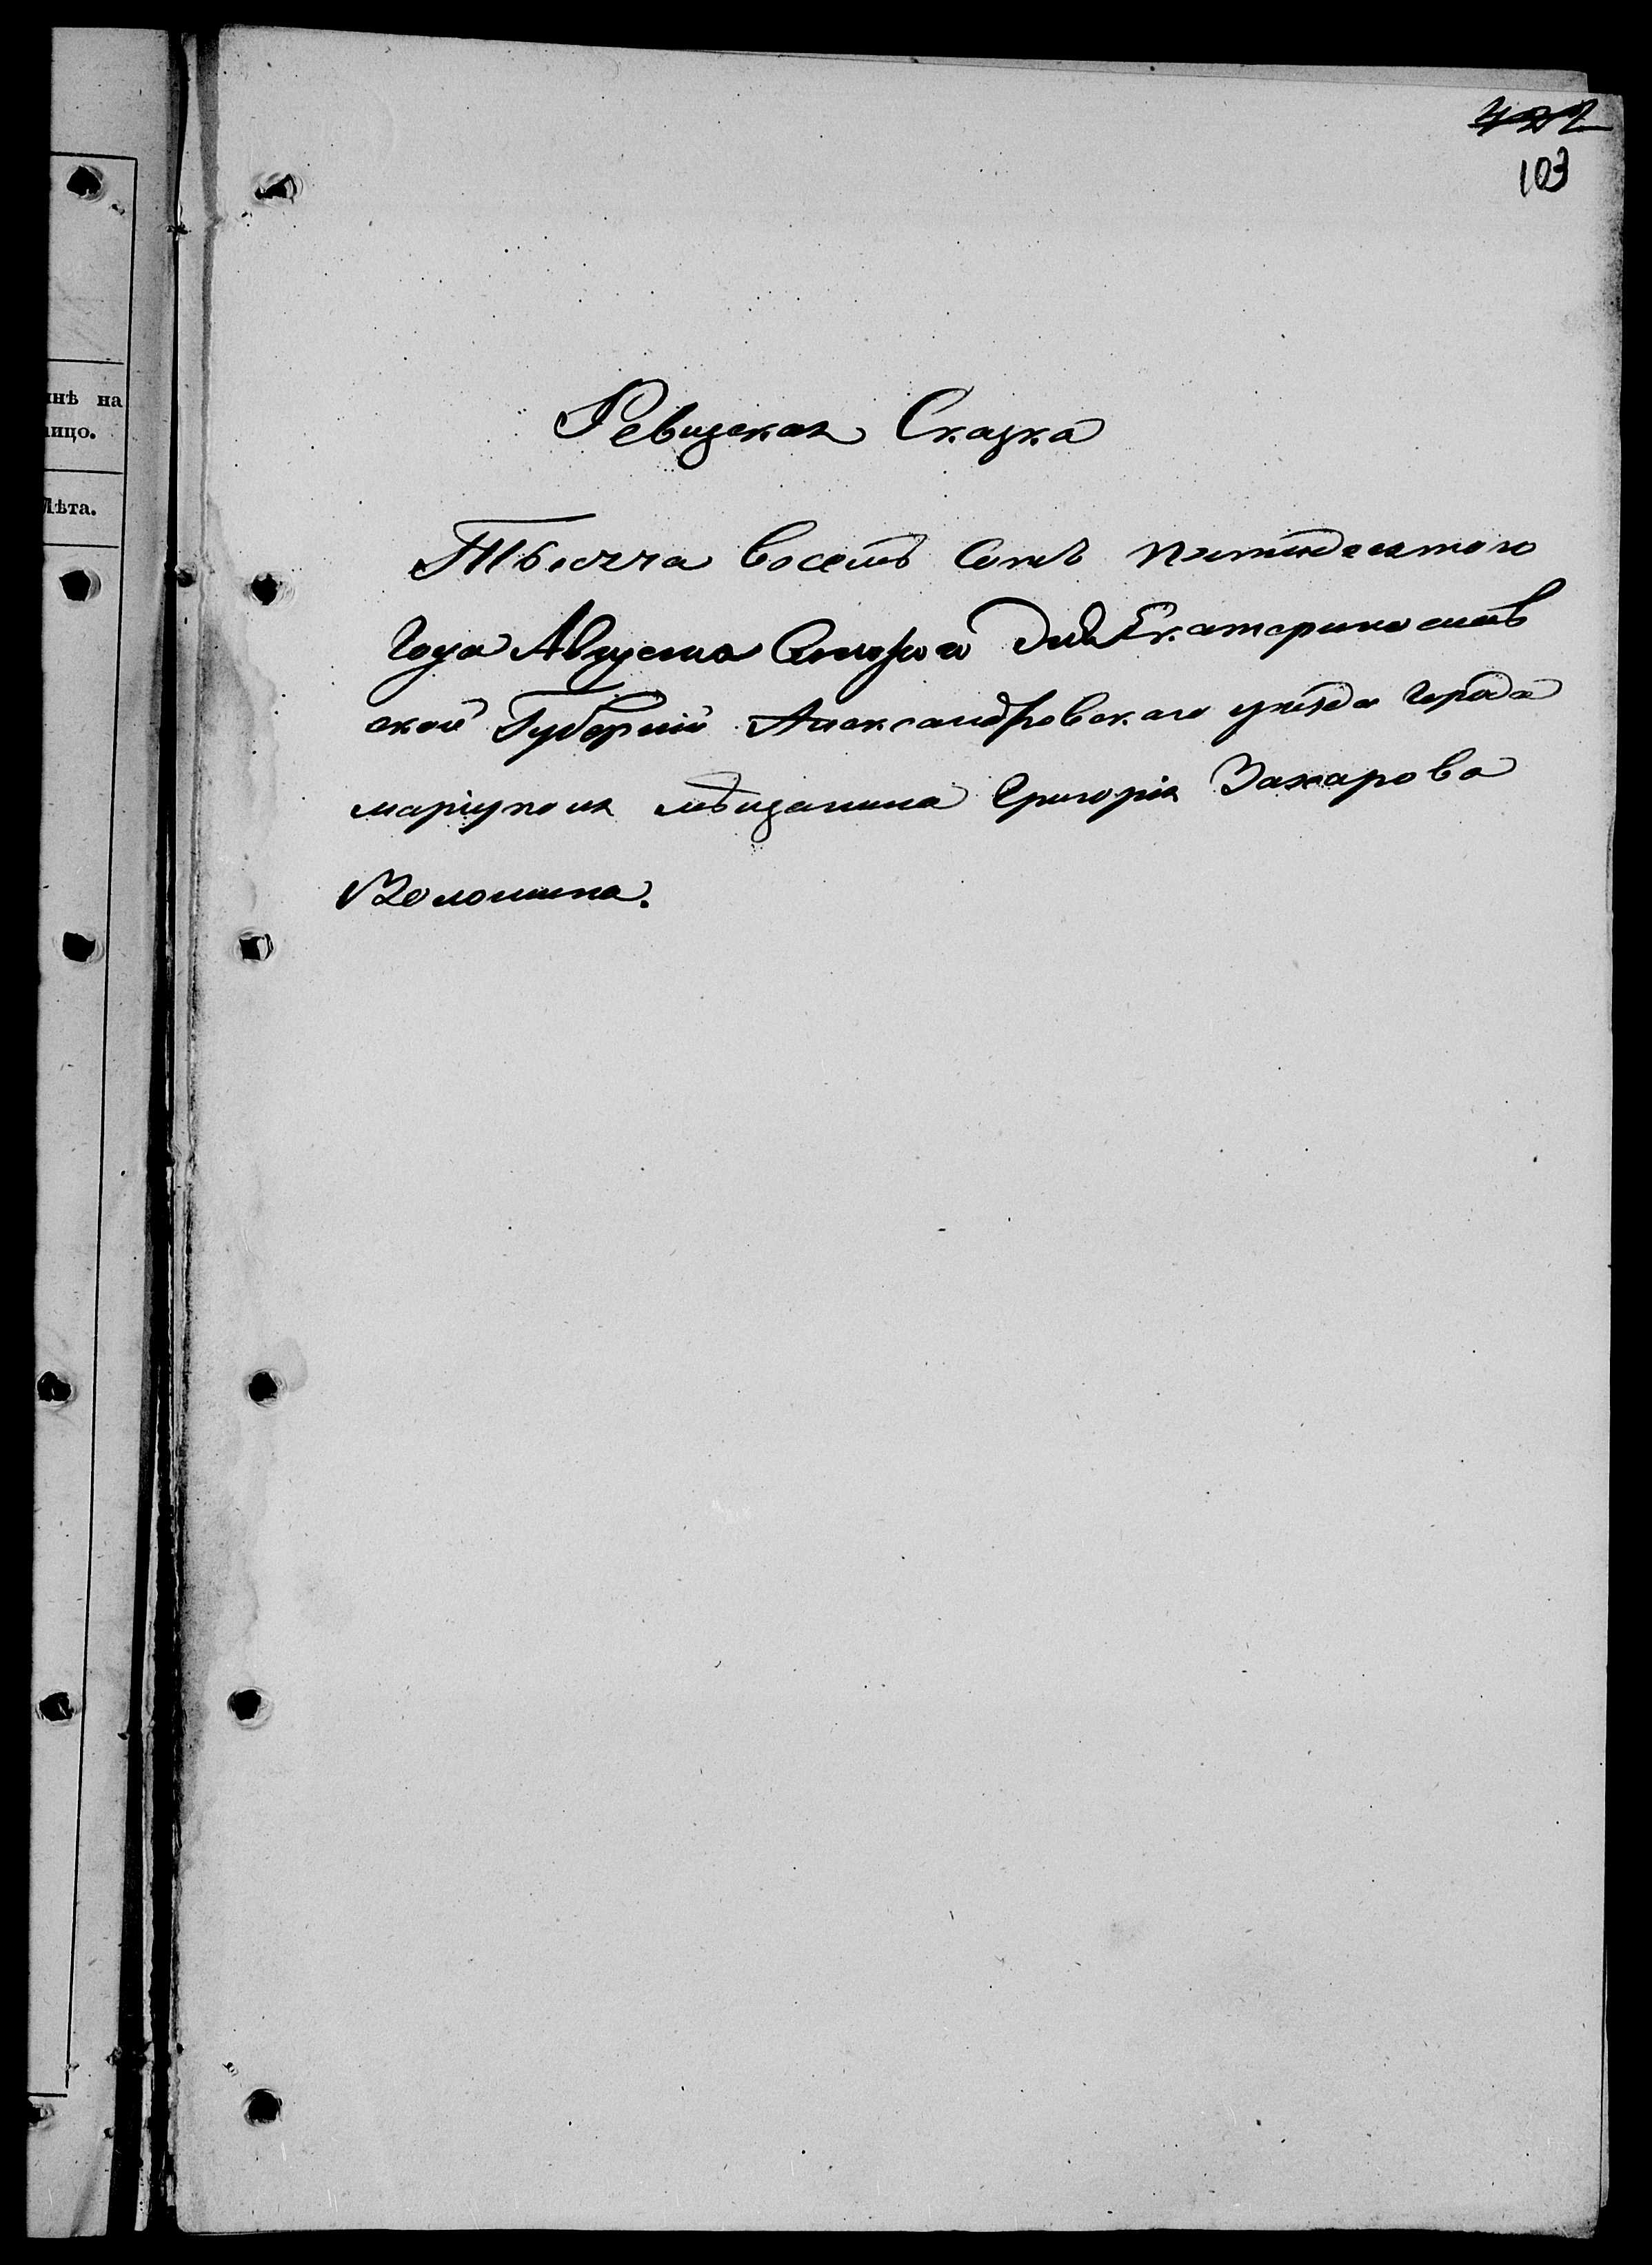 103
Ревизская Сказка
Тысяча восемь сотъ пятидесятого
Года Августа Второго дня Екатеринослав
ской Губерніи Александровского уѣзда Города
маріуполя мѣщанина Григорія Захарова
Волошина.
инѣ на
лицо.
Лѣта.